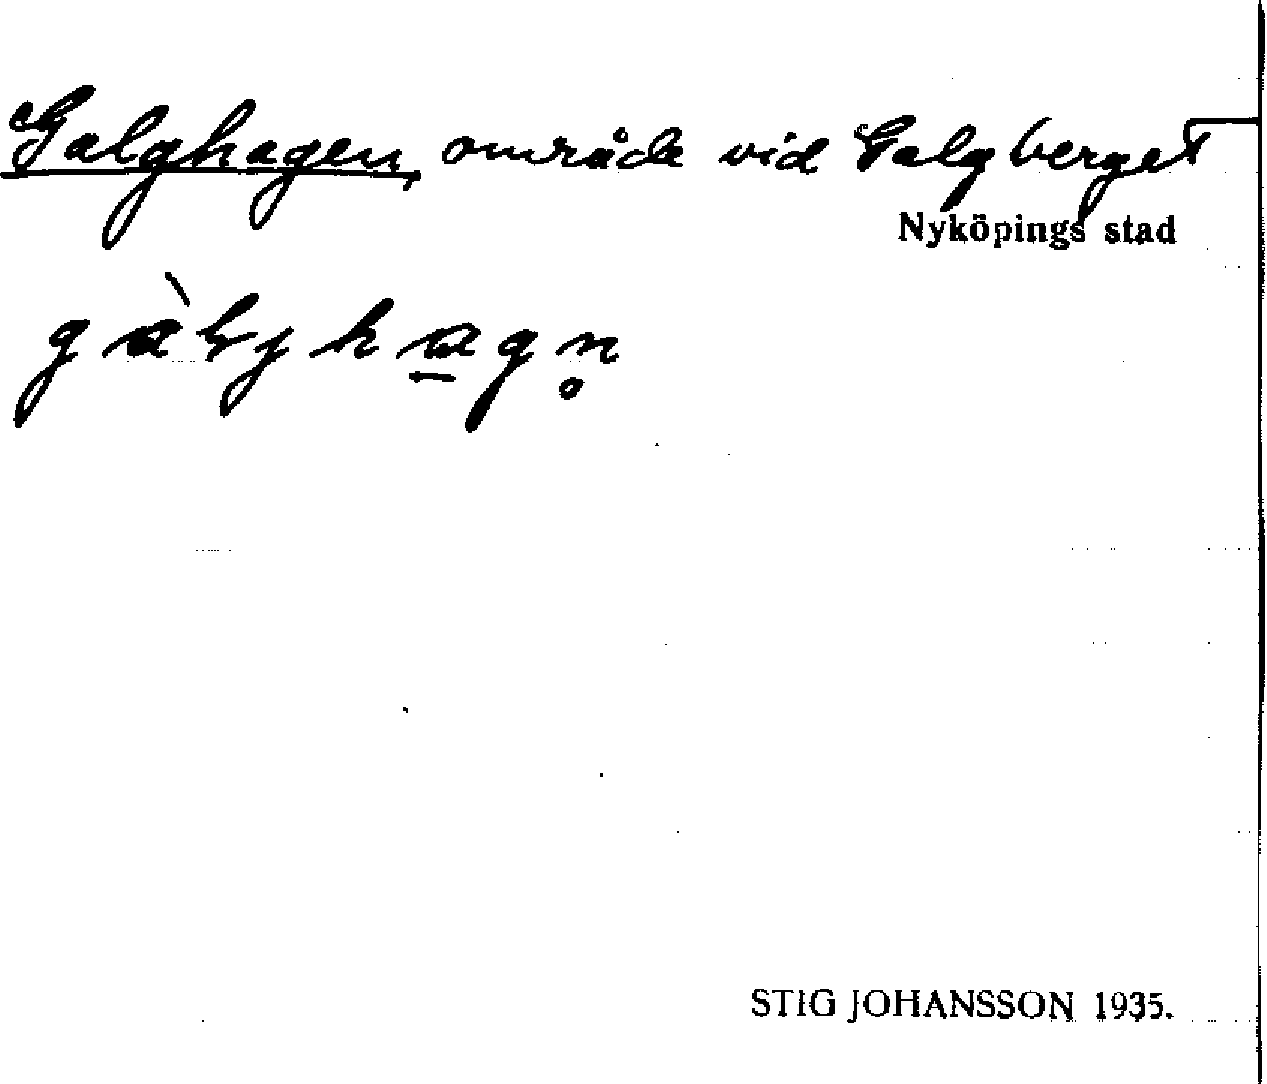 Galghagen, område vid Galgberget
Nyköpings stad
gàljhag̲n̥
STIG JOHANSSON 1935.